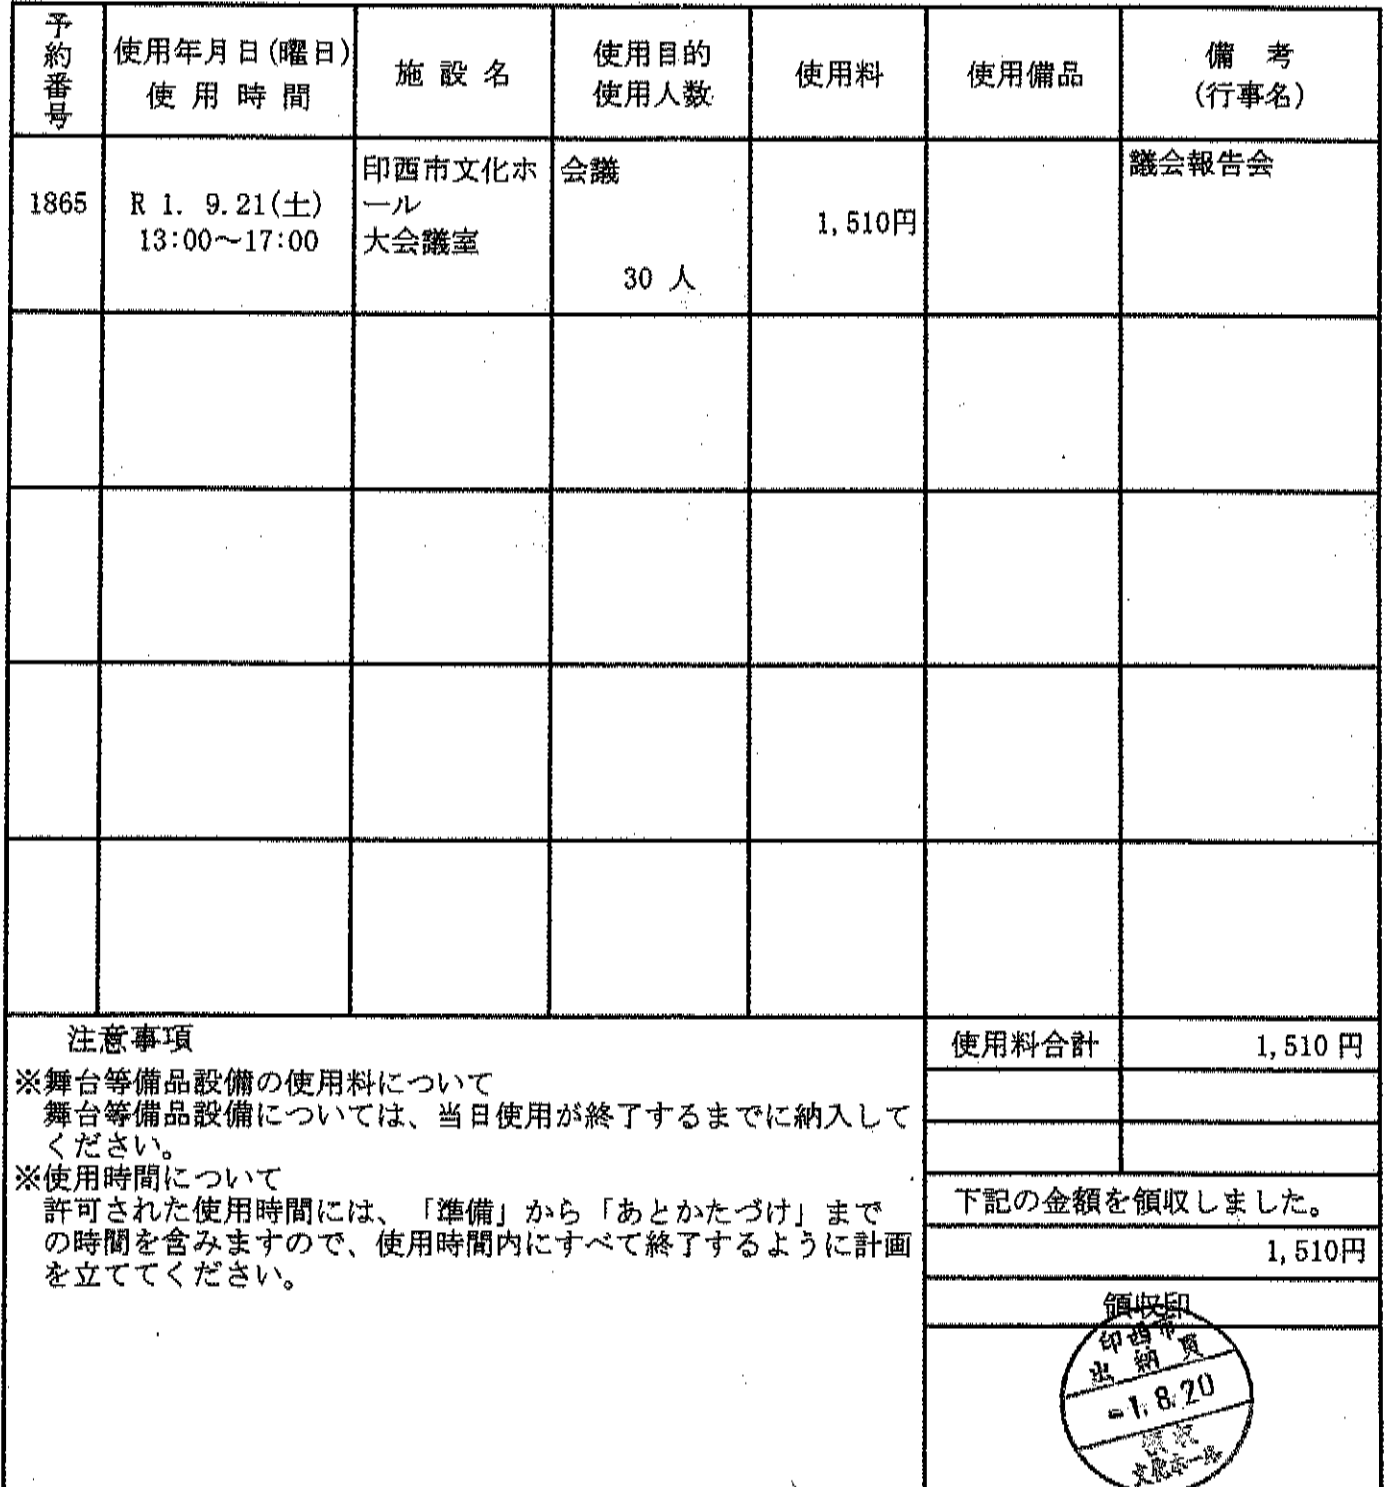 予約番号
使用年月日(曜日)
使用時間
施設名
使用目的
使用人数
使用料
使用備品
備考
(行事名)
1865
R 1. 9.21(土)
13:00～17:00
印西市文化ホ
ール
大会議室
会議
30 人
1,510円
議会報告会
注意事項
※舞台等備品設備の使用料について
舞台等備品設備については、当日使用が終了するまでに納入して
ください。
※使用時間について
許可された使用時間には、「準備」から「あとかたづけ」まで
の時間を含みますので、使用時間内にすべて終了するように計画
を立ててください。
使用料合計
1,510 円
下記の金額を領収しました。
1,510円
領収印
印西市
出納員
-1.8.20
領収
文化ホール